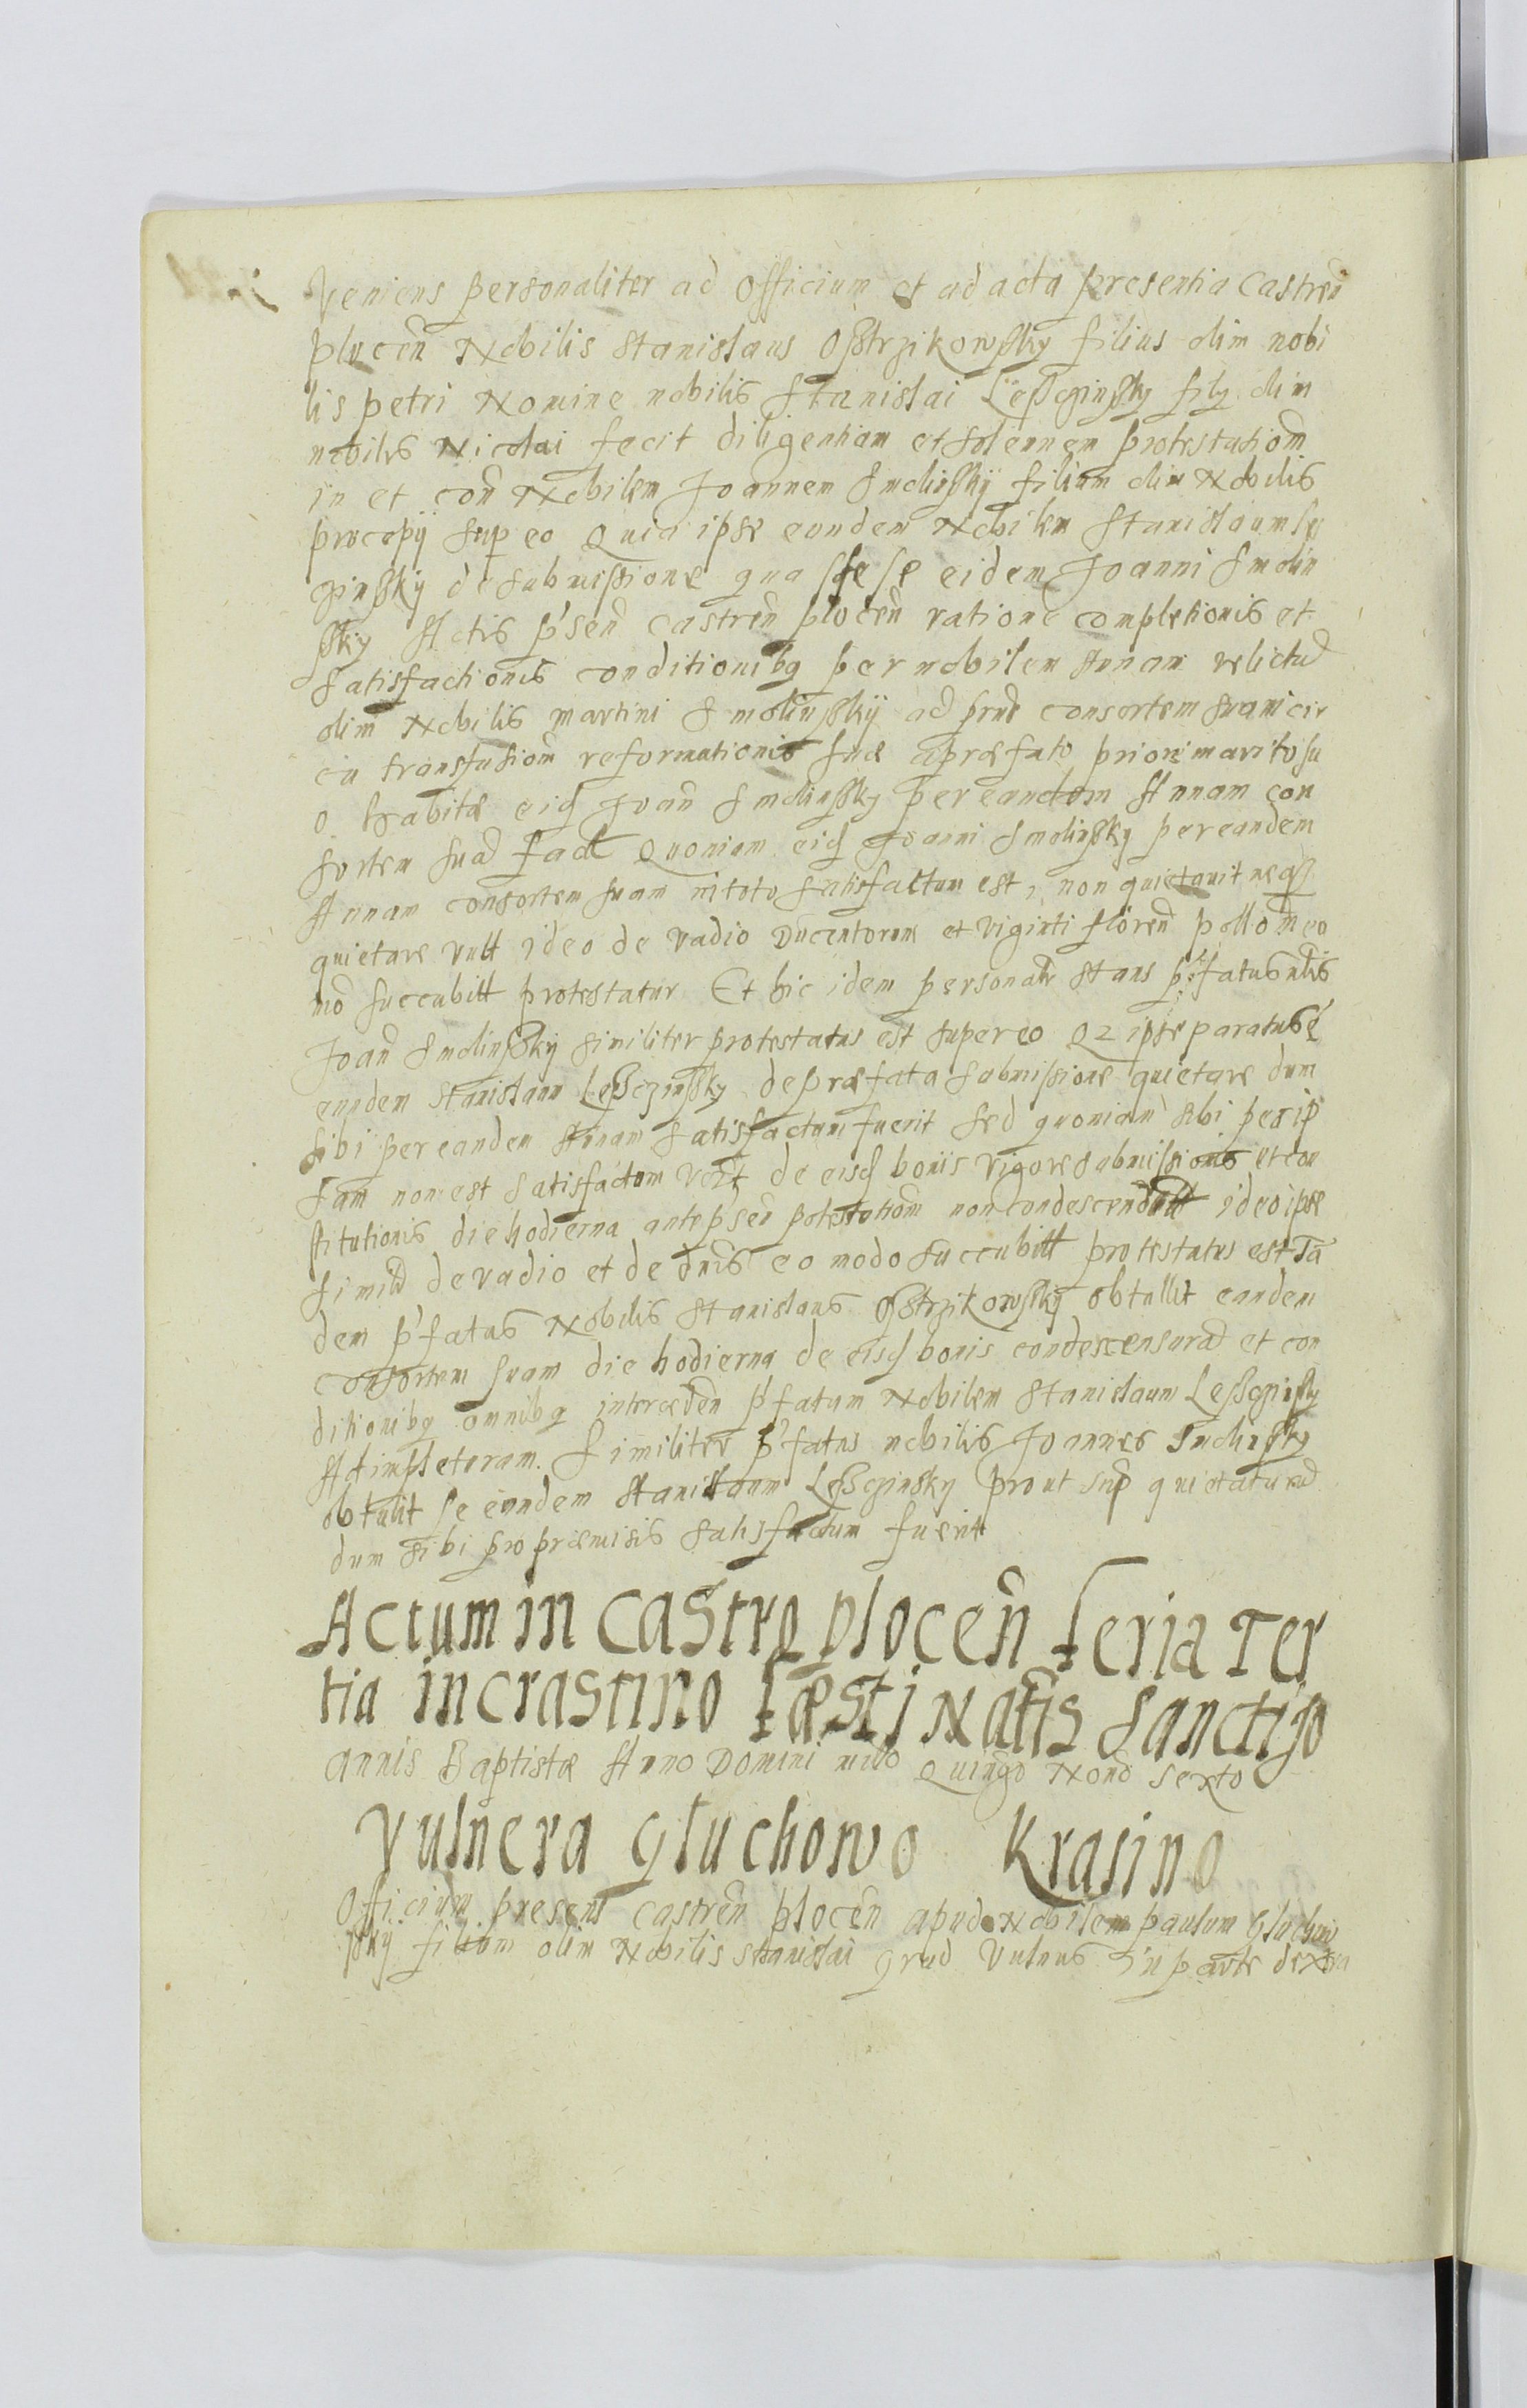 Veniens personaliter ad officium et ad acta presentia Castren̄
plocen̄ Nobilis Stanislaus Ostrzikowsky filius olim nobi
lis petri Nomine nobilis Stanislai Lesczinsky filÿ olim
nobilis Nicolai fecit diligentiam et solennem protestation̄em
in et con̄ Nobilem Joannem Smolinskÿ filium olim Nobilis
procopÿ sup eo Quia ipse eundem Nobilem Stanislaum Les
czinskÿ de submissione qua sese eidem Joanni Smolin
sky Actis p'sen̄ Castren̄ plocen̄ ratione completionis et
satisfactionis conditionibq per nobilem Annam relictā
olim Nobilis martini Smolinskÿ ad pn̄s consortem suam cir
ca transfusionē reformationis suæ a præfato priori marito su
o habitæ eid Joan̄ Smolinsky per eandem Annam con
sortem suā fact Quoniam eid Joanni Smolinsky per eandem
Annam consortem suam in toto satisfactum est, non quietauit neqз
quietare vult ideo de vadio Ducentorum et viginti floren̄ pollo in eo
mō succubitt protestatur Et hic idem personalr stans p'fatus nblis
Joan̄ Smolinskÿ similiter protestatus est super eo Qz ipse paratus ē
eundem Stanislaum Lesczinsky de præfata submissione quietare dum
sibi per eandem Annam satisfactum fuerit sed quoniam sibi per ip
sam non est satisfactum de eisd bonis vigore submissionis et con
stitutionis die hodierna ante p'sen̄ protestationē non condescenditt ideo ipse
de vadio et de dn̄is eo modo succubitt protestatus est Tā
dem p'fatus Nobilis Stanislaus Ostrzikowskÿ obtullit eandem
consortem suam die hodierna de eisd bonis condescensurā et con
ditionibq omnibq interceden̄ p'fatum Nobilem Stanislaum Lesczinsky
Adimpleturam. Similiter p'fatus nobilis Joannes Smolinsky
obtulit se eundem Stanislaum Lesczinsky prout sup quietaturū
dum sibi pro præmisis satisfactum fuerit
Actum in Castro plocen̄ feria Ter
tia in crastino fæsti Natīs Sancti Jo
annis Baptistæ Anno Domini millo Quingō Nonō Sexto
Vulnera Gluchowo Krasino
Officium presens Castren̄ plocen̄ apud Nobilem paulum Gluchow
skÿ filium olim Nobilis Stanislai Vulnus in parte dextra